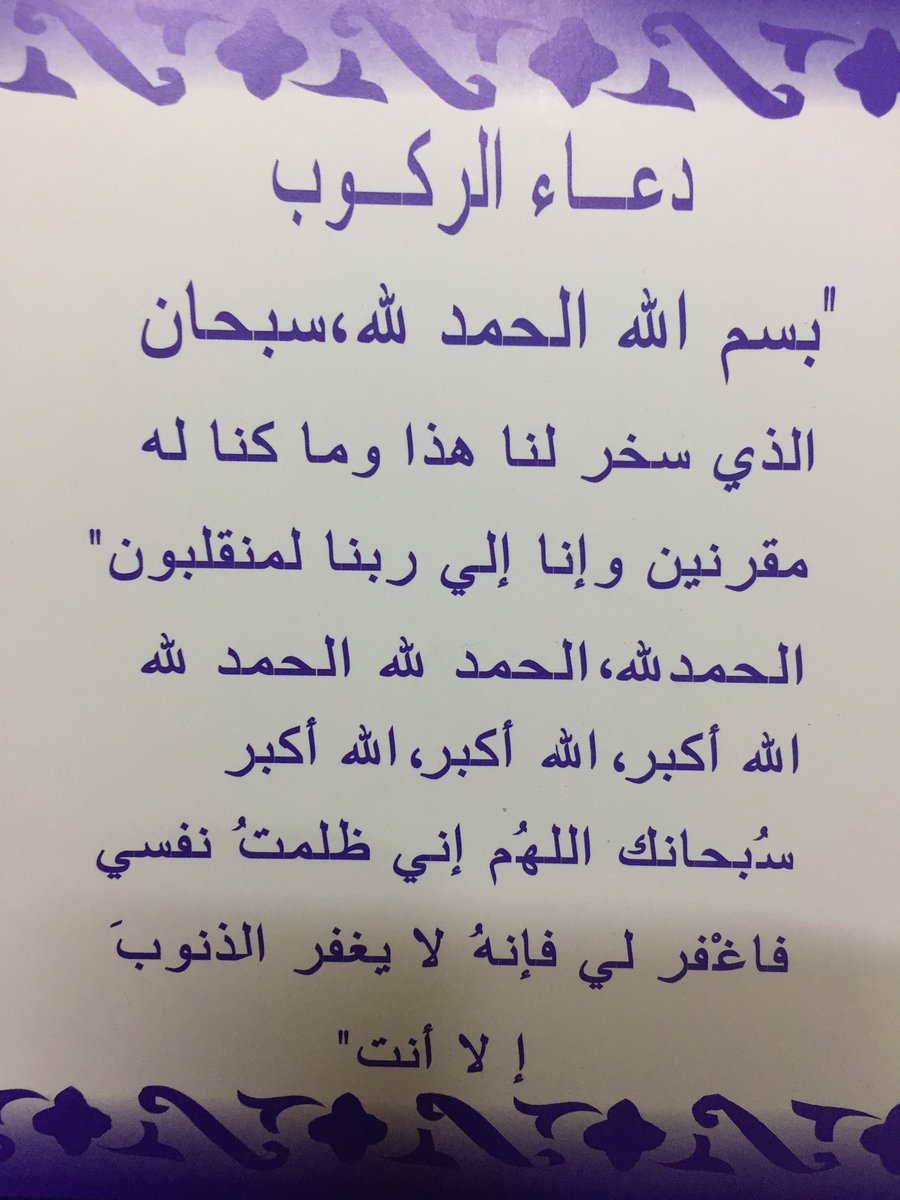 دعـــاء الركـــوب
"بسم الله الحمد لله،سبحان
الذي سخر لنا هذا وما كنا له
مقرنين وإنا إلي ربنا لمنقلبون"
الحمدلله،الحمد لله الحمد لله
الله أكبر،الله أكبر،الله أكبر
سُبحانك اللهُم إني ظلمتُ نفسي
فاغْفر لي فإنهُ لا يغفر الذنوبَ
إ لا أنت"